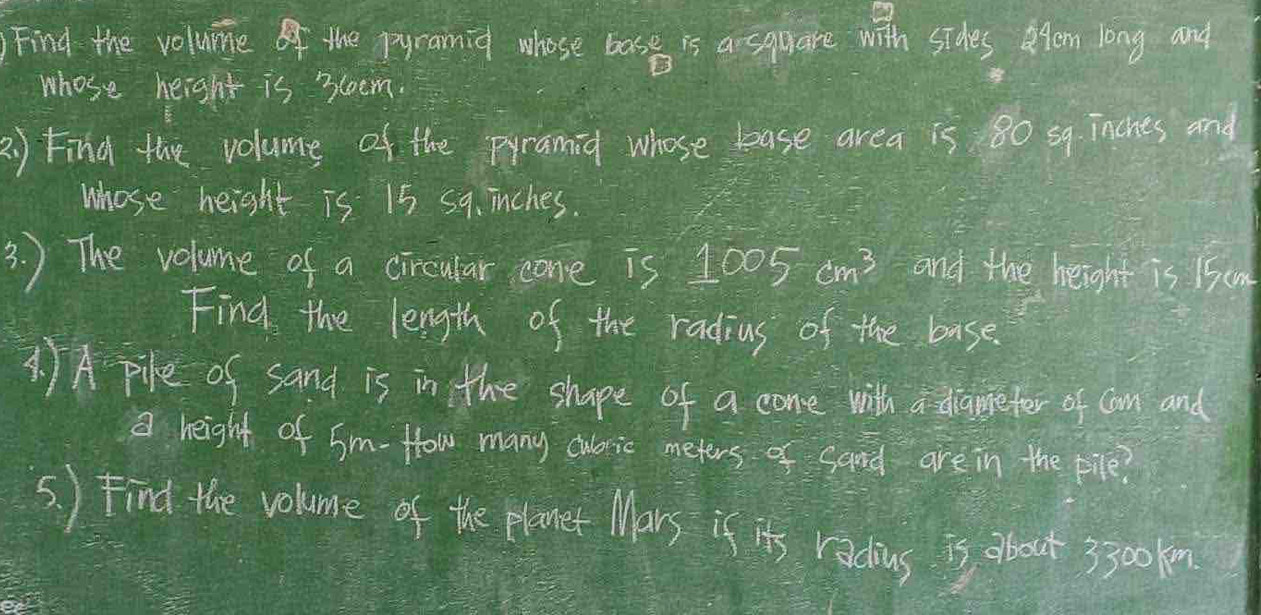 ) Find the volume of the pyramid whose base is a square with sides 24cm long and
whose height is 36cm.
2.) Find the volume of the pyramid whose base area is 80 sq. inches and
whose height is 15 sq. inches.
3.) The volume of a circular cone is 1005 cm³ and the height is 15cm
Find the length of the radius of the base.
4.) A pile of sand is in the shape of a cone with a diameter of 6m and
a height of 5m. How many cubic meters of sand are in the pile?
5.) Find the volume of the planet Mars if its radius is about 3300 km.